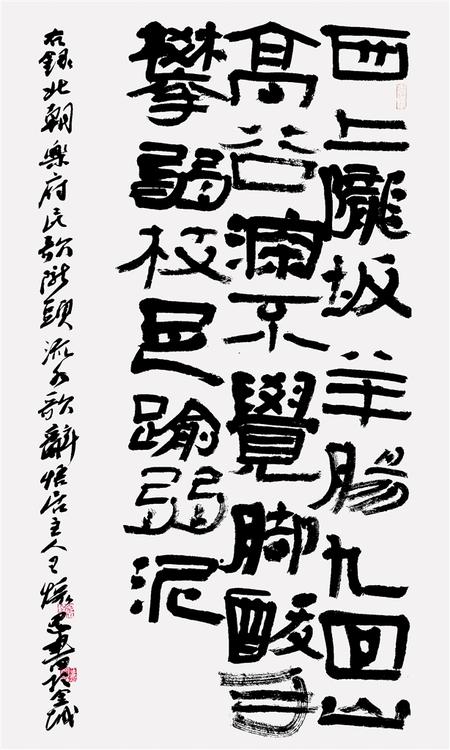 西上隴坂羊腸九回山
高谷深不覺腳酸手
攀弱枝足踰弱泥
右錄北朝樂府民歌隴頭流水歌辭悟宕主人王